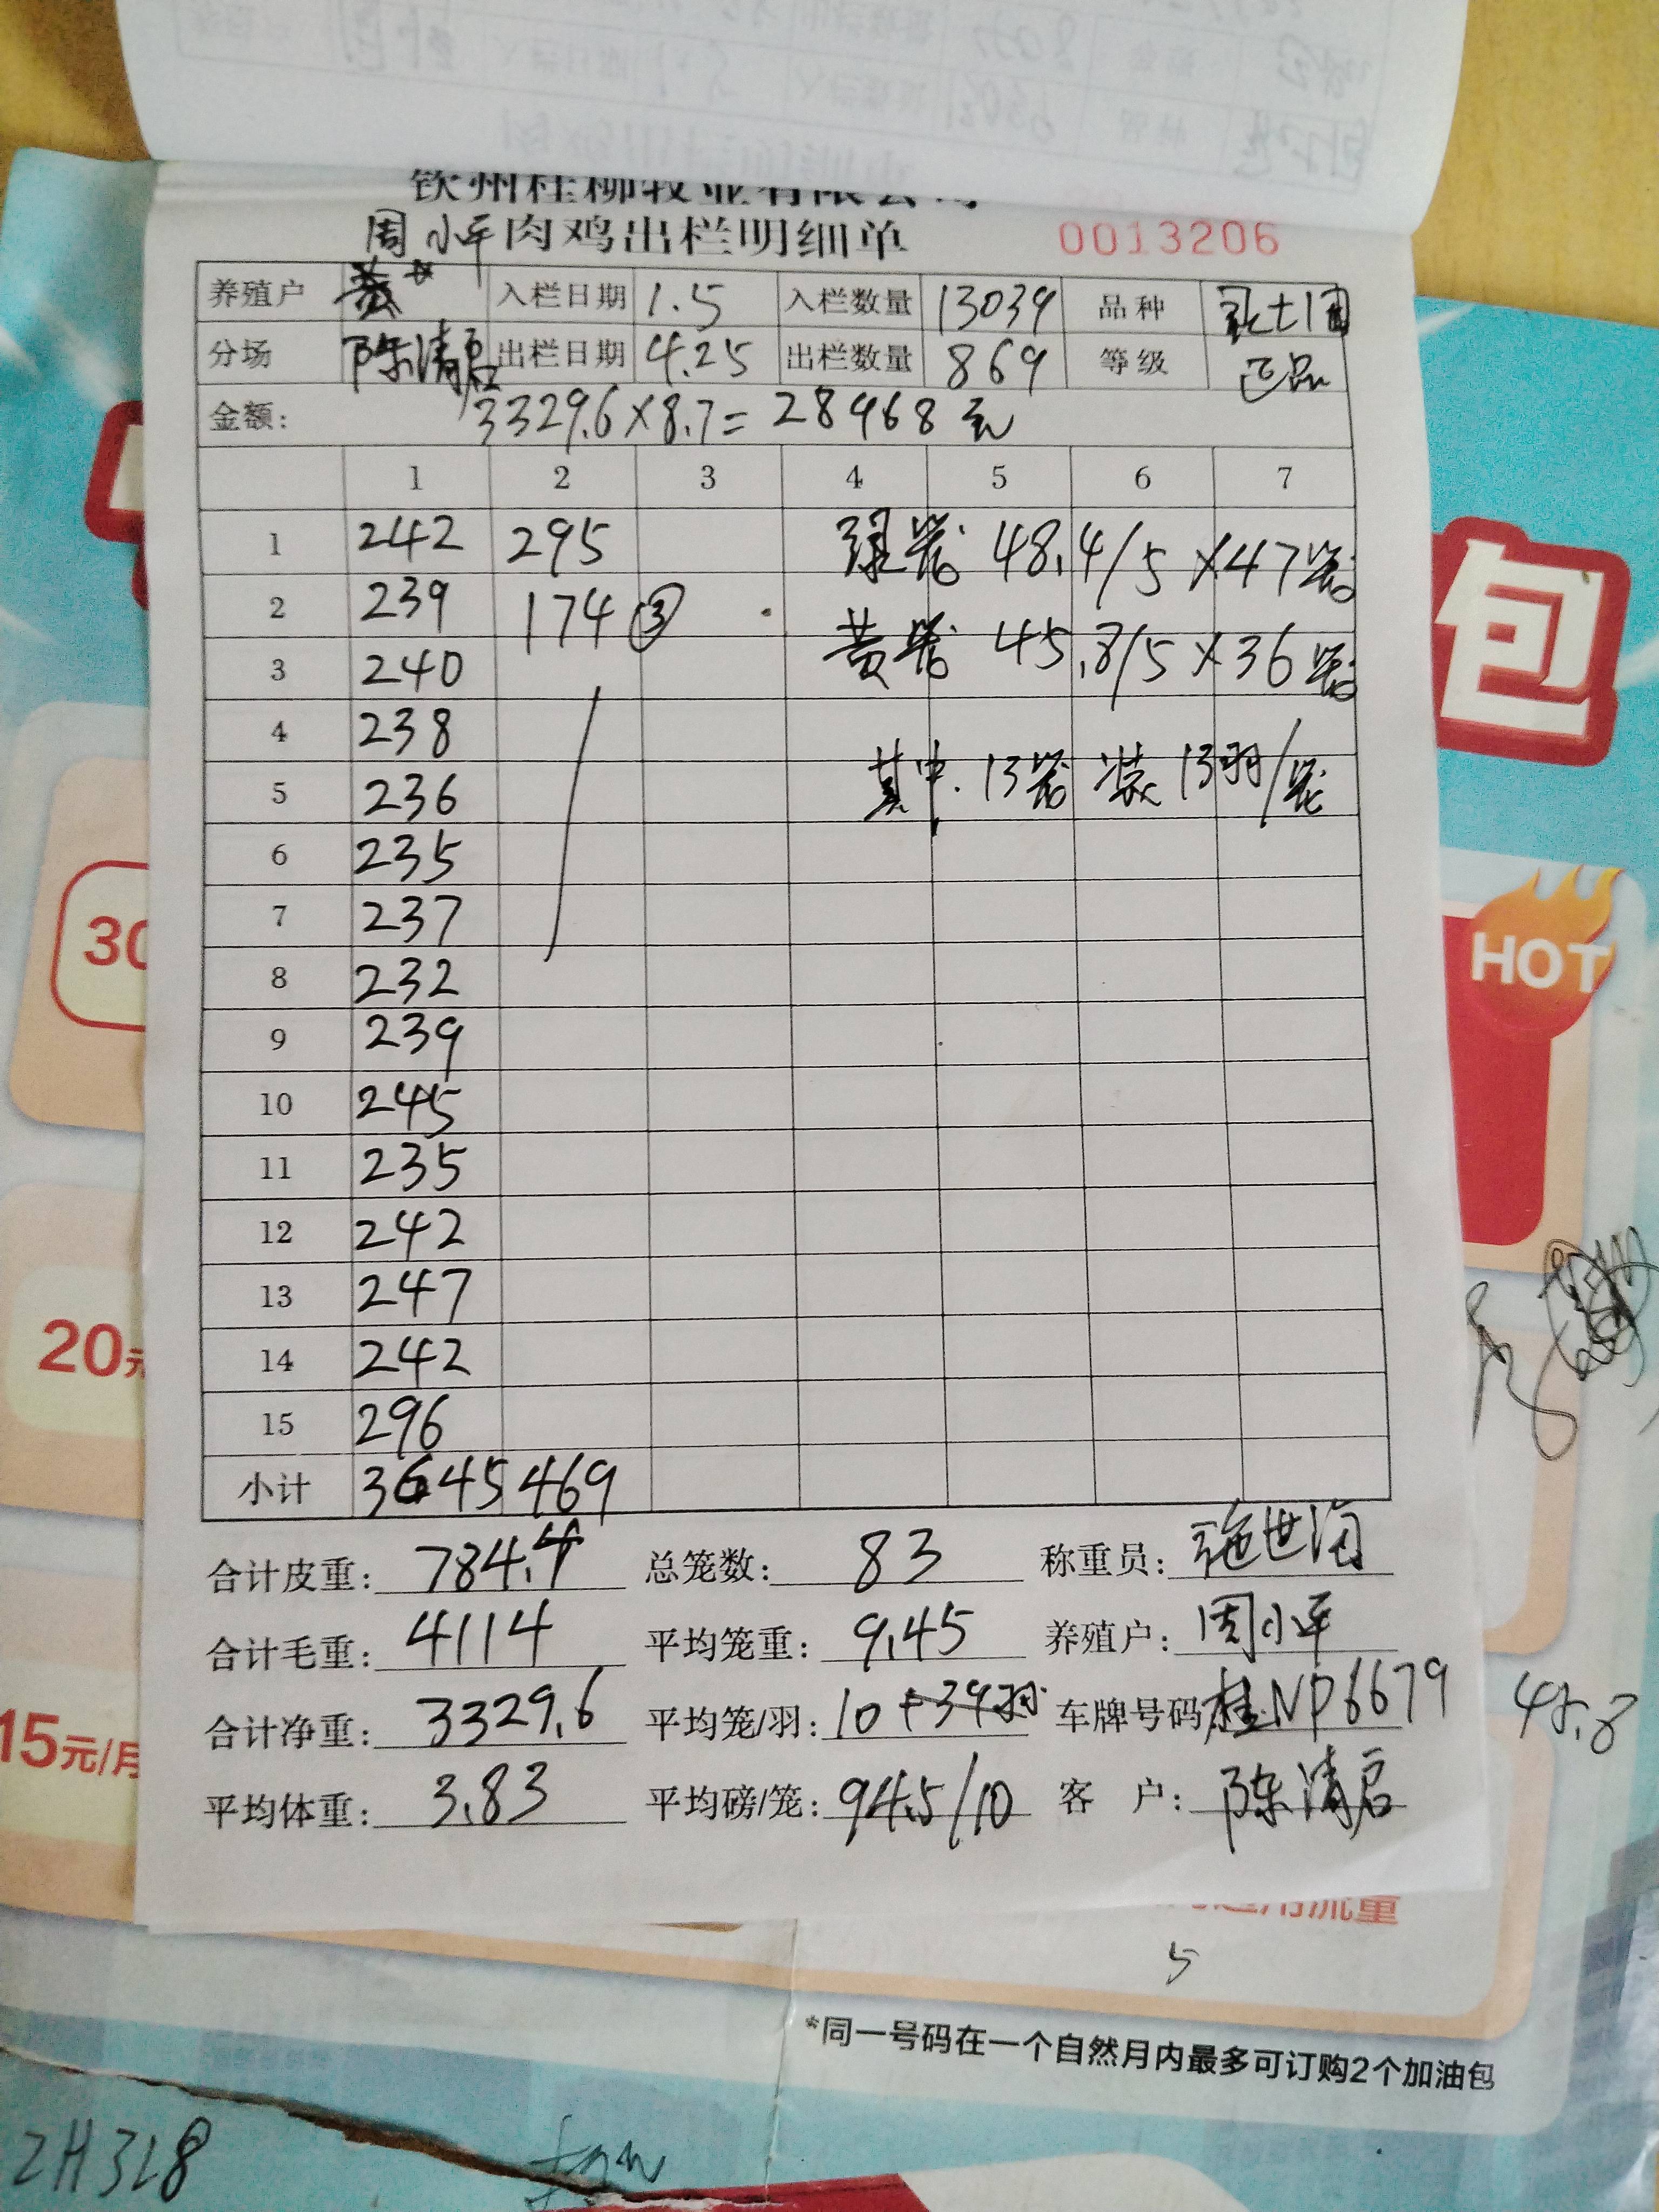 钦州桂柳牧业有限公司
周小平 肉鸡出栏明细单 0013206
养殖户 入栏日期 1.5 入栏数量 13039 品种
分场 陈清启 出栏日期 4.25 出栏数量 869 等级 正品
金额: 3329.6×8.7=28968元
1 2 3 4 5 6 7
1 242 295 绿笼 48.4/5×47笼
2 239 174 ③
黄笼 45.8/5×36笼
3 240
4 238
其中.13笼装13羽/笼
5 236
6 235
7 237
8 232
9 239
10 245
11 235
12 242
13 247
14 242
15 296
小计 3645 469
合计皮重: 784.4 总笼数: 83 称重员: 施世海
合计毛重: 4114 平均笼重: 9.45 养殖户: 周小平
合计净重: 3329.6 平均笼/羽: 10+39羽 车牌号码 桂NP6679
平均体重: 3.83 平均磅/笼: 94.5/10 客 户: 陈清启
45.8
包
HOT
30
20元
15元/月
用流量
5
*同一号码在一个自然月内最多可订购2个加油包
2H328